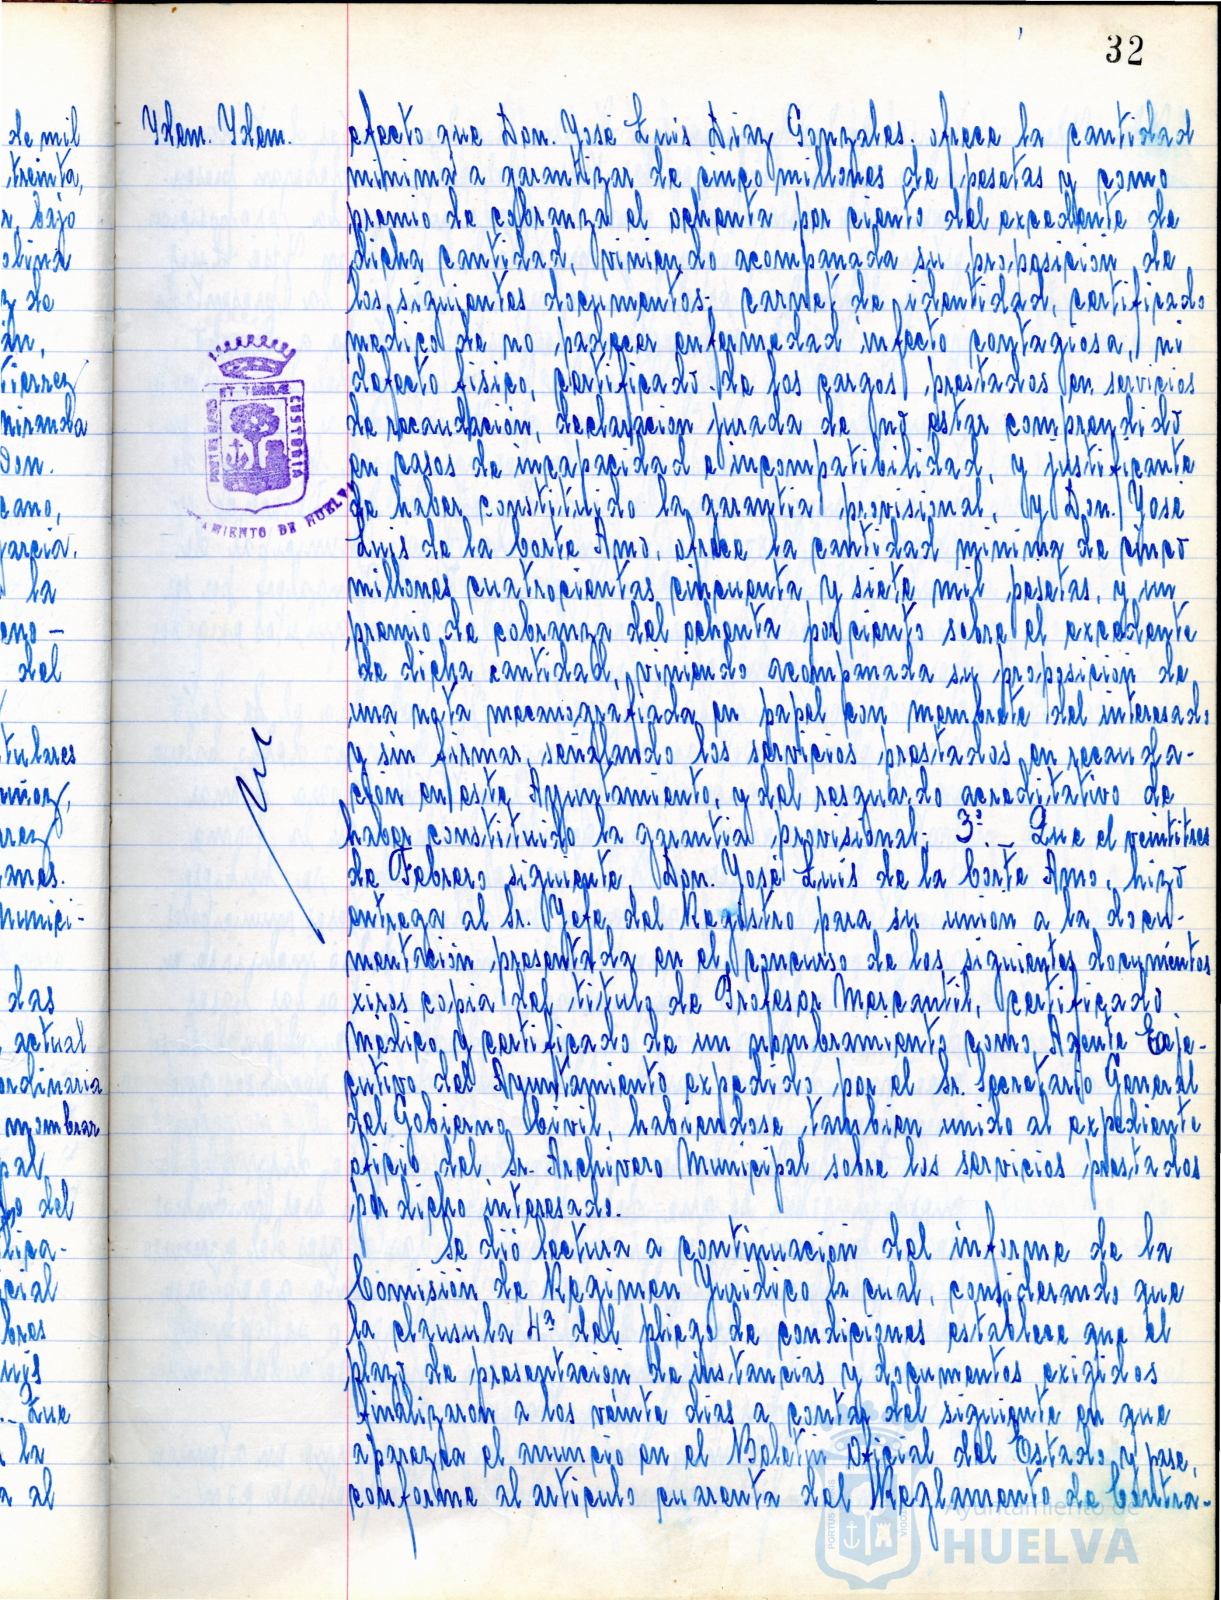 32
Ydem. Ydem.
efecto que Don. José Luis Diaz Gonzales. ofrece la cantidad
minima a garantizar de cinco millones de pesetas y como
premio de cobranza el ochenta por ciento del excedente de
dicha cantidad, viniendo acompañada su proposición de
los siguientes documentos; carnet de identidad, certificado
medico de no padecer enfermedad infecto contagiosa, ni
defecto fisico, certificado de los cargos prestados en servicios
de recaudación, declaracion jurada de no estar comprendido
en casos de incapacidad e incompatibilidad, y justificante
de haber constituido la garantia provisional, y Don. José
Luis de la Corte Amo, ofrece la cantidad minima de cinco
millones cuatrocientas cincuenta y siete mil pesetas, y un
premio de cobranza del ochenta por ciento sobre el excedente
de dicha cantidad, viniendo acompañada su proposición de
una nota mecanografiada en papel con membrete del interesado
y sin firmar, señalando los servicios prestados en recauda-
ción en este Ayuntamiento, y del resguardo acreditativo de
haber constituido la garantia provisional. 3º.- Que el veintitres
de Febrero siguiente, Don. José Luis de la Corte Amo, hizo
entrega al Sr. Jefe del Registro para su unión a la docu-
mentación presentada en el concurso de los siguientes documentos
xiros copia del titulo de Profesor Mercantil, certificado
medico y certificado de un nombramiento como Agente Eje-
cutivo del Ayuntamiento expedido por el Sr. Secretario General
del Gobierno Civil, habiendose tambien unido al expediente
oficio del Sr. Archivero Municipal sobre los servicios prestados
por dicho interesado.
Se dió lectura a continuación del informe de la
Comisión de Regimen Juridico la cual, considerando que
la clausula 4ª del pliego de condiciones establece que el
plazo de presentación de instancias y documentos exigidos
finalizaron a los veinte dias a contar del siguiente en que
aparezca el anuncio en el Boletin Oficial del Estado, y pase,
conforme al articulo cuarenta del Reglamento de Contra-
de mil
treinta,
r, bajo
olina
z de
an,
tierrez
miranda
Don.
cano,
garcia.
la
eno-
del
tulares
uñoz,
rez
anas.
munici-
das
actual
ordinaria
nombrar
pal
del
lica-
cial
bres
Que
la
a al
ET TERRAE
CUSTODIA
PORTUS MARIS
AMIENTO DE HUELVA
Ayuntamiento de
HUELVA